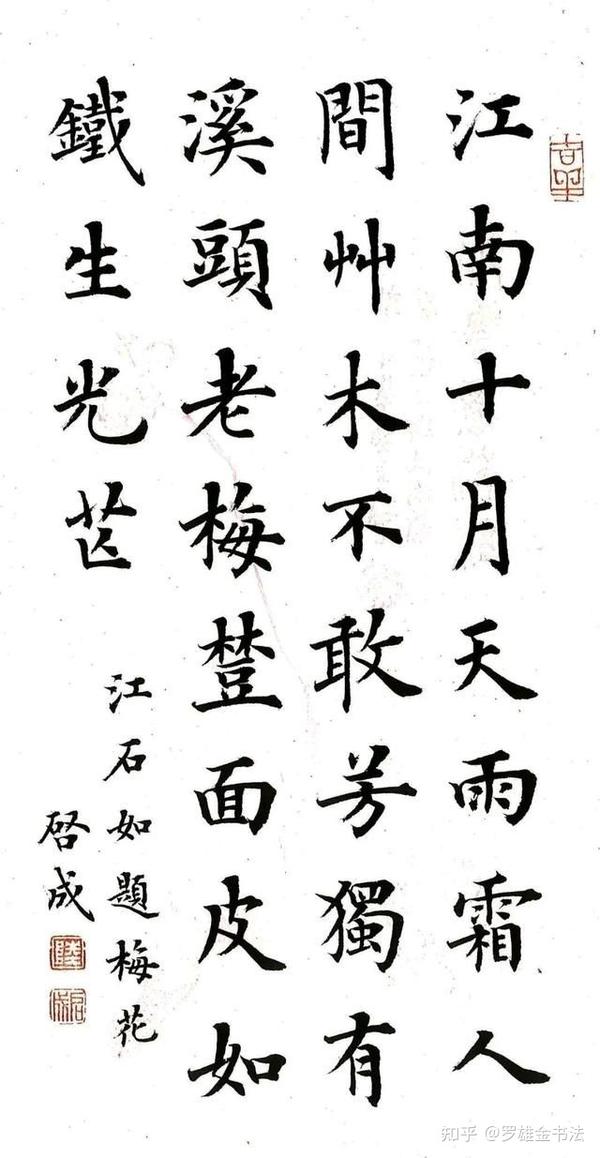 江南十月天雨霜人
間艸木不敢芳獨有
溪頭老梅面皮如
鐵生光芒
江石如題梅花
啓成
知乎 @罗雄金书法